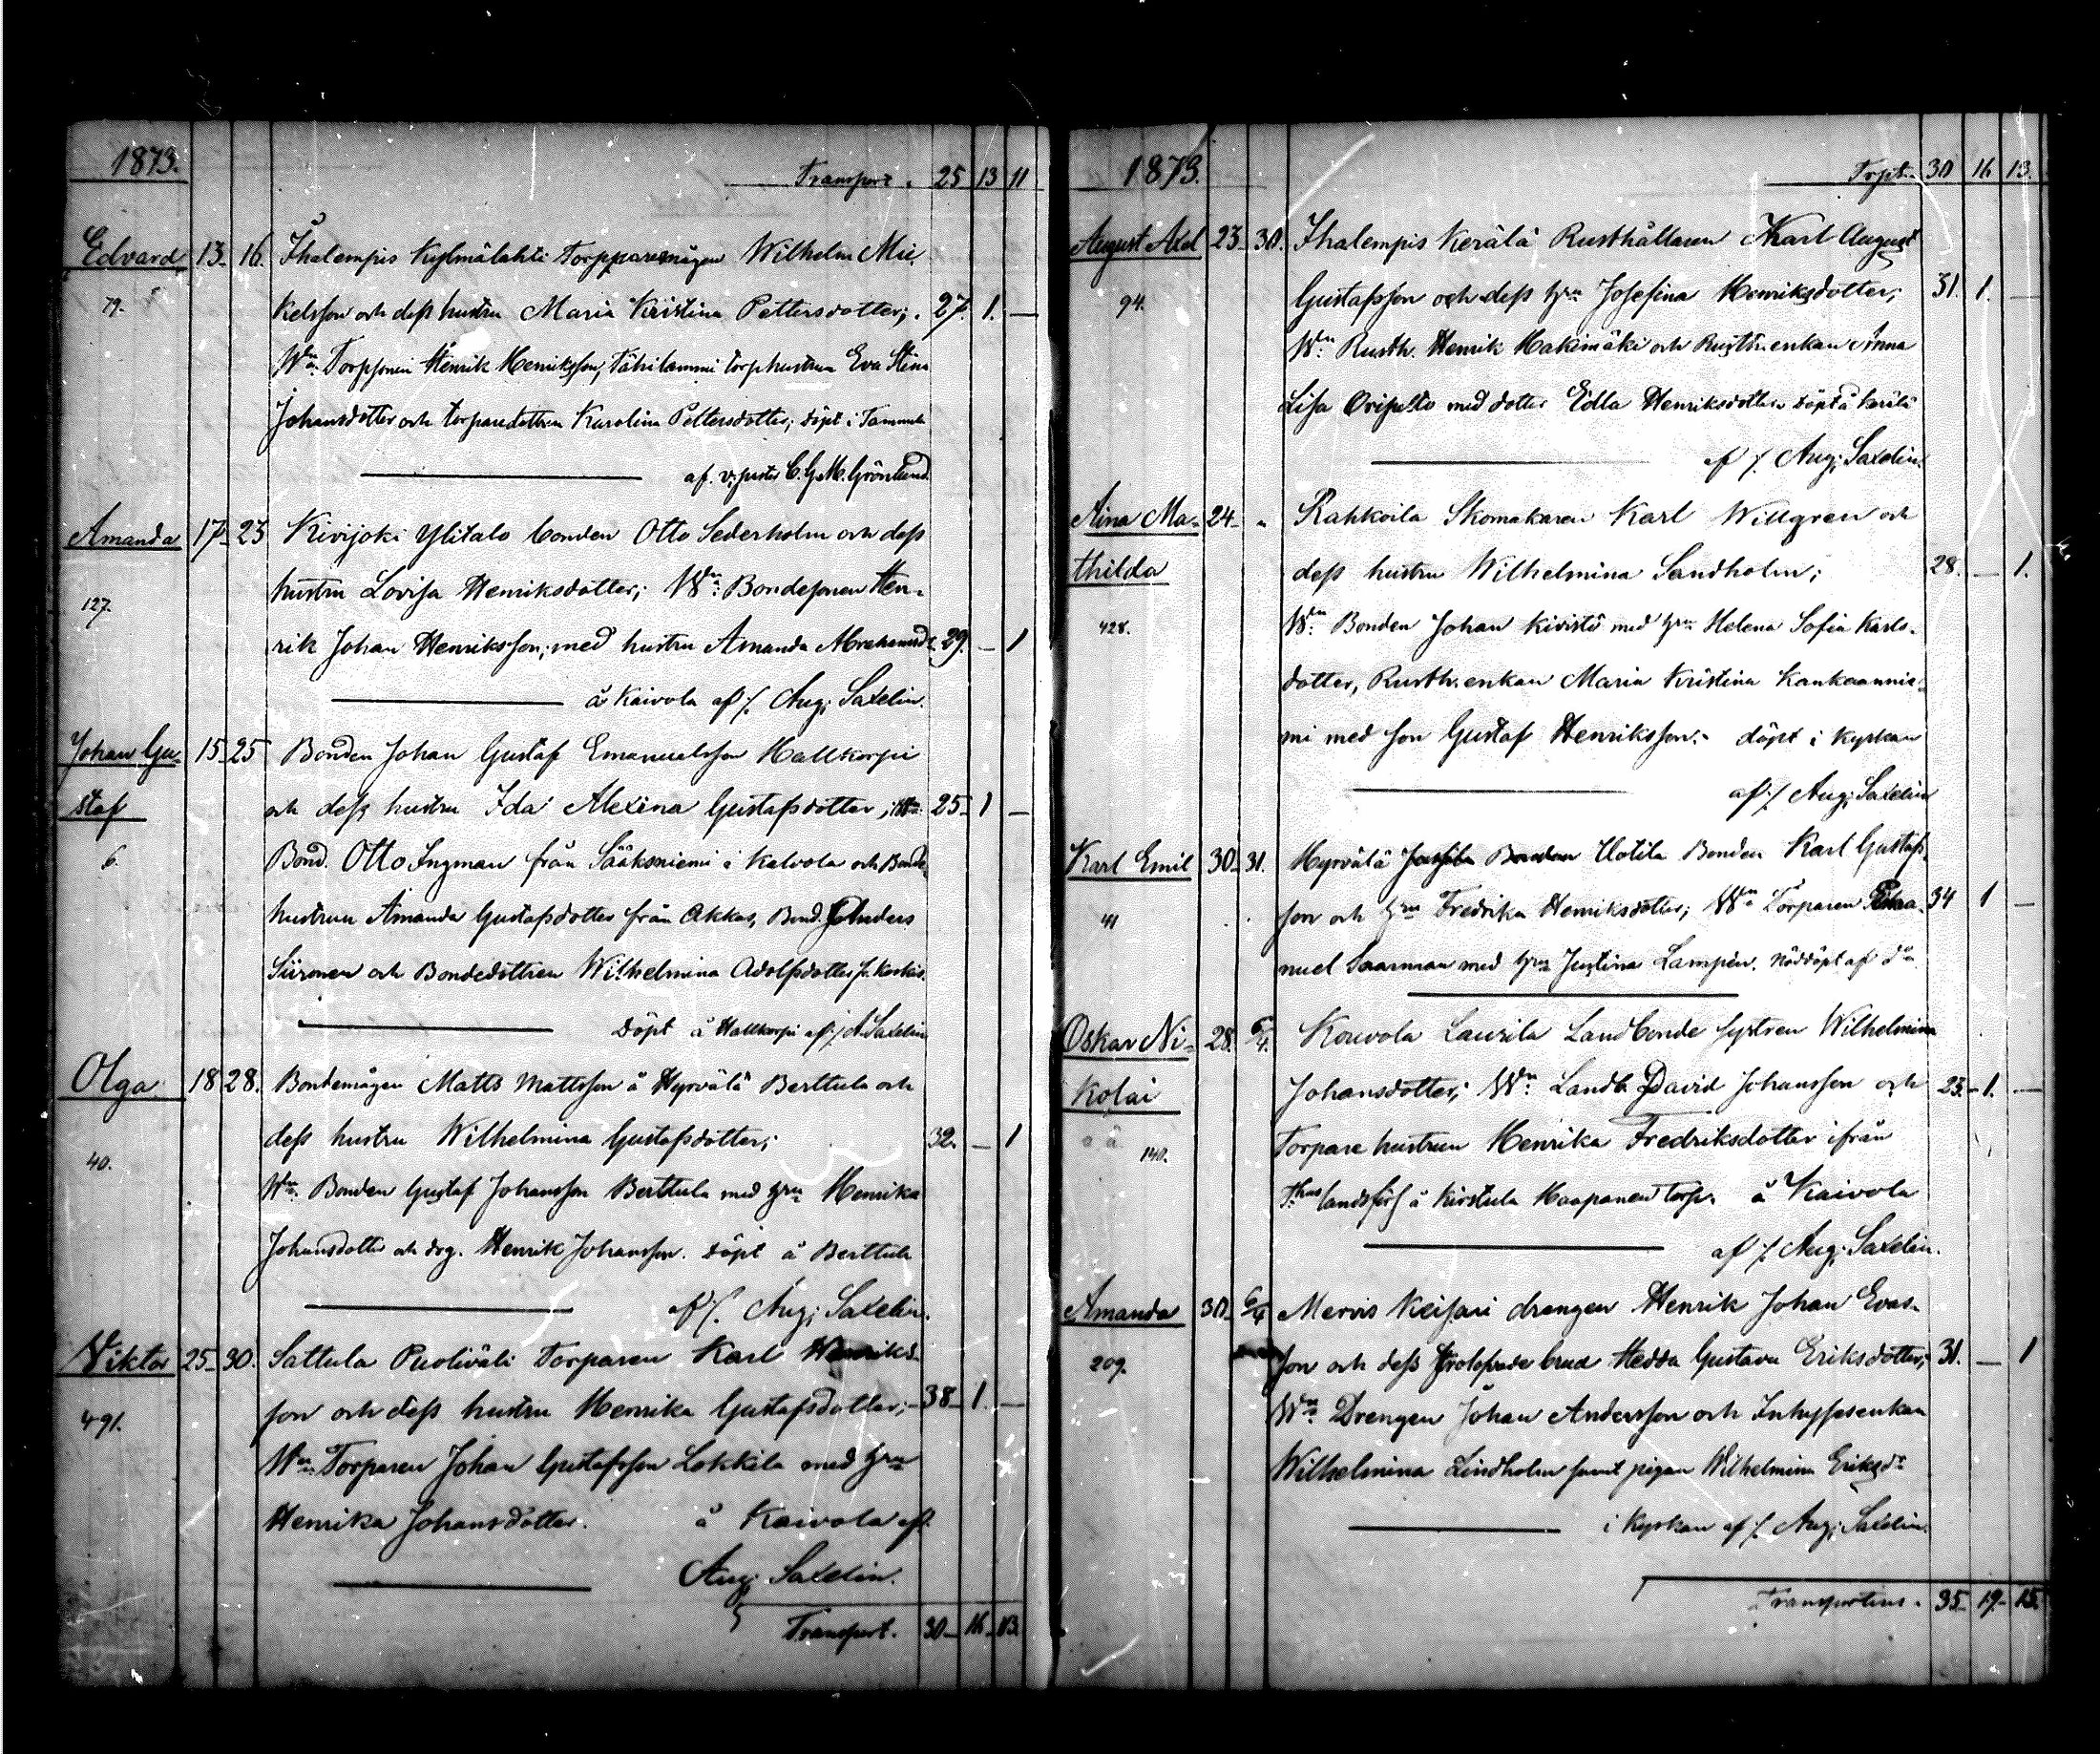 1873.
Transport. 25 13 11
Edvard 13. 16. Ihalempis Kylmälahti Torpparemågen Wilhelm Mic-
79. kelsson och dess hustru Maria Kristina Pettersdotter; 27. 1. —
Wn: Torpsonen Henrik Henriksson, Tähilammi torphustrun Eva Stina
Johansdotter och torparedottren Karolina Pettersdotter; döpt i Tammela
af. v. pastor C. G. M. Grönlund.
Amanda 17. 23 Kivijoki Ylitalo bonden Otto Sederholm och dess
127. hustru Lovisa Henriksdotter; Wn: Bondesonen Hen-
rik Johan Henriksson, med hustru Amanda Abrahamsd: 29. — 1
å Kaivola af /. Aug. Saxelin.
Johan Gu- 15. 25 Bonden Johan Gustaf Emanuelsson Hallkorpi
staf och dess hustru Ida Alexina Gustafsdotter; Wn: 25. 1 —
6. Bond. Otto Ingman från Sääksniemi i Kalvola och Bonde-
hustrun Amanda Gustafsdotter från Akkas, Bond. Anders
Siironen och Bondedottren Wilhelmina Adolfsdotter
Döpt å Hallkorpi af /. A. Saxelin
Olga 18 28. Bondemågen Matts Mattsson å Hyrvälä Berttula och
40. dess hustru Wilhelmina Gustafsdotter; 32. — 1
Wn: Bonden Gustaf Johansson Berttula med hru Henrika
Johansdotter och drg. Henrik Johansson. döpt å Berttula
af /. Aug. Saxelin.
Viktor 25. 30. Sattula Puoliväli Torparen Karl Henriks-
491. son och dess hustru Henrika Gustafsdotter; 38. 1. —
Wn: Torparen Johan Gustafsson Lokkila med hru
Henrika Johansdotter. å Kaivola af.
Aug. Saxelin.
Transport. 30. 16. 13.
1873.
Trpt. 30 16 13.
August Axel 23. 30. Ihalempis Kerälä Rusthållaren Karl August
94. Gustafsson och dess hru Josefina Henriksdotter; 31. 1. —
Wn: Rusth. Henrik Hakimäki och Rusth.enkan Anna
Lisa Oripelto med dotter Edla Henriksdotter döpt å Kerälä
af /. Aug. Saxelin.
Aina Ma- 24. " Rahkoila Skomakaren Karl Willgren och
thilda dess hustru Wilhelmina Sandholm; 28. — 1.
428. Wn: Bonden Johan Kivistö med hru Helena Sofia Karls-
dotter, Rusth.enkan Maria Kristina Kankaannie-
mi med son Gustaf Henriksson. döpt i Kyrkan
af /. Aug. Saxelin
Karl Emil 30. 31. Hyrvälä Uotila Bonden Karl Gustafs-
41 son och hru Fredrika Henriksdotter; Wn: Torparen Ema- 34 1 —
nuel Saarman med hru Justina Lampén. Nöddöpt af dn
Oskar Ni- 28. 6/4. Kouvola Laurila Landbonde systren Wilhelmina
kolai Johansdotter; Wn: Landb. David Johansson och 23. 1. —
140. Torpare hustrun Henrika Fredriksdotter ifrån
Thus landsförs å Kirstula Haapanen torp. å Kaivola
af /. Aug. Saxelin.
Amanda 30. 6/4 Mervis Keisari drengen Henrik Johan Evas-
209. son och dess trolofvade brud Hedda Gustava Eriksdotter; 31. — 1
Wn: Drengen Johan Andersson och Inhysesenkan
Wilhelmina Lindholm samt pigan Wilhelmina Eriksdr
i Kyrkan af /. Aug. Saxelin.
Transporteras. 35. 19. 15.